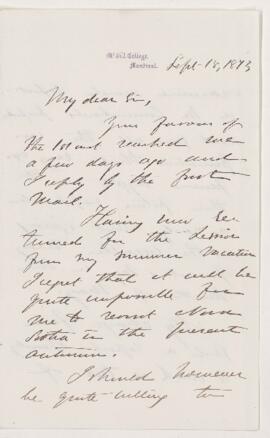 McGill College,
Montreal.
Sept. 18, 1873
My dear Sir,
Your favour of
the 1st inst reached me
a few days ago and
I reply by the first
mail.
Having now re
turned for the Session
from my summer vacation
I regret that it will be
quite impossible for
me to revisit Nova
Scotia in the present
autumn.
I should however
be quite willing to